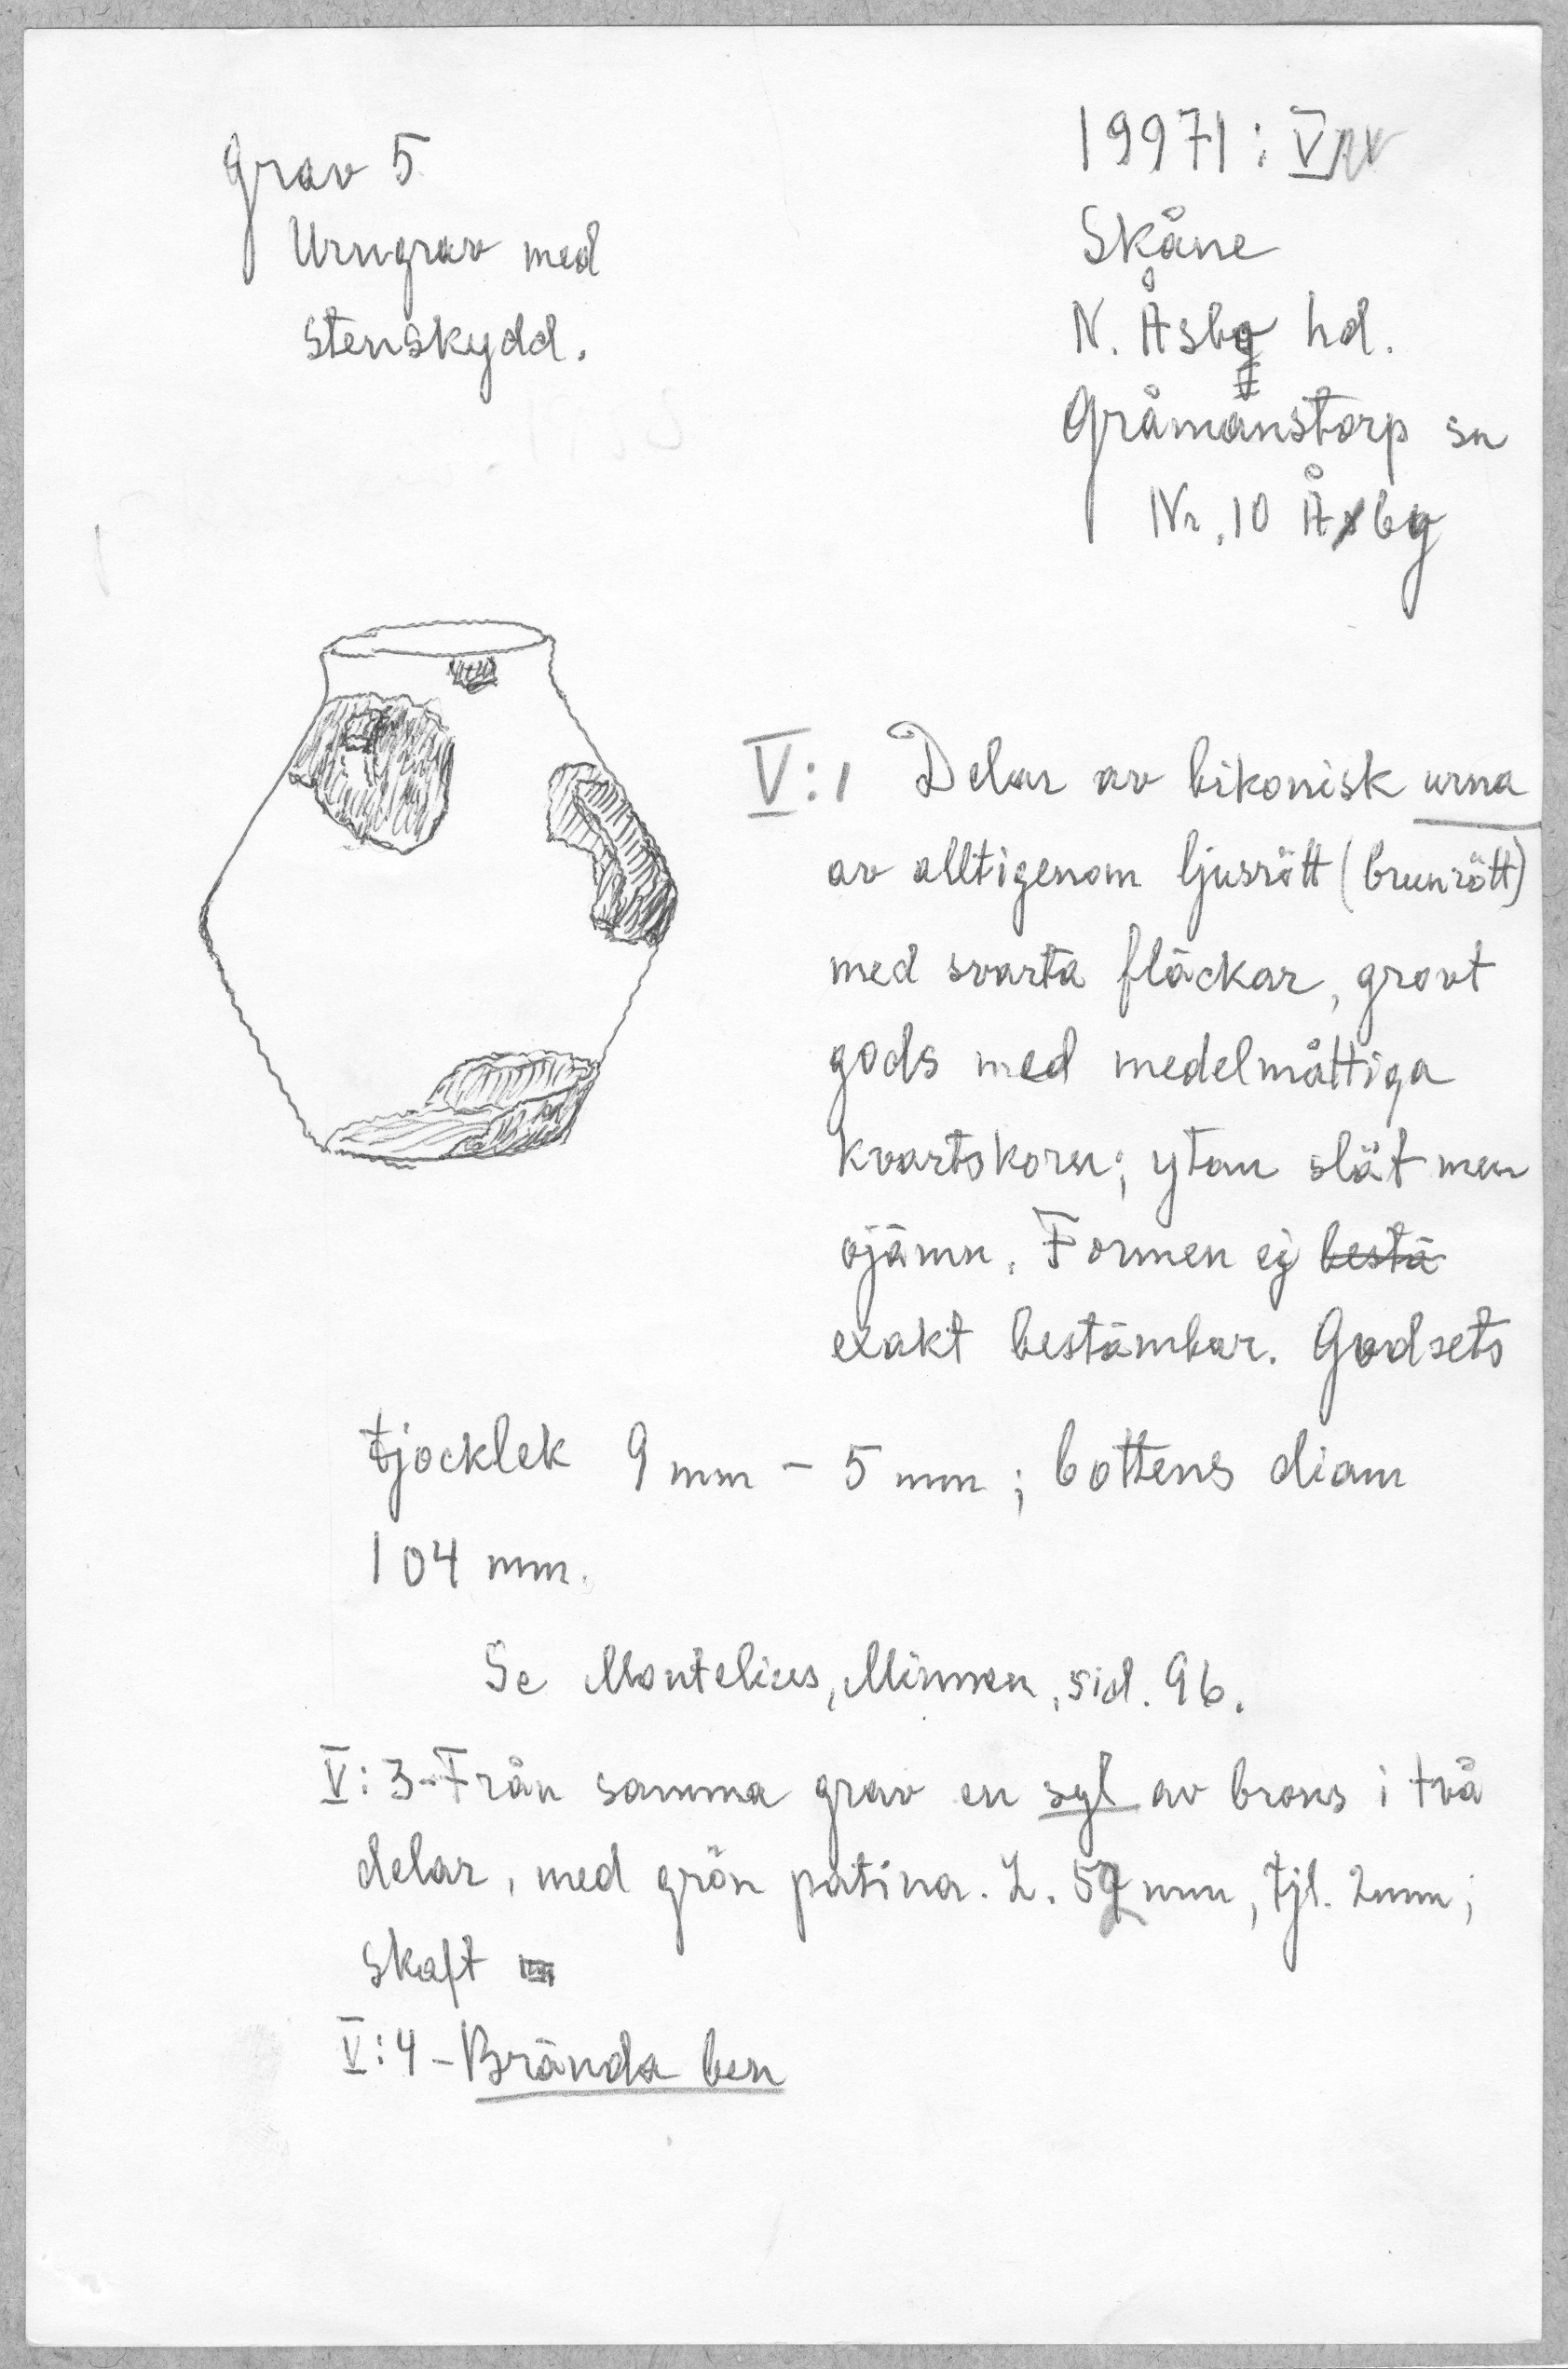 Grav 5
Urngrav med
stenskydd.
19971: V
Skåne
N. Åsbo hd.
Gråmanstorp sn
Nr. 10 Åby
V:1 Delar av bikonisk urna
av alltigenom ljusrött (brunrött)
med svarta fläckar, grovt
gods med medelmåttiga
kvartskorn; ytan slät men
ojämn. Formen ej bestä
exakt bestämbar. Godsets
tjocklek 9 mm - 5 mm; bottens diam
104 mm.
Se Montelius, Minnen, sid. 96.
V:3-Från samma grav en syl av brons i två
delar, med grön patina. L. mm, tjl. 2mm;
skaft
V:4-Brända ben